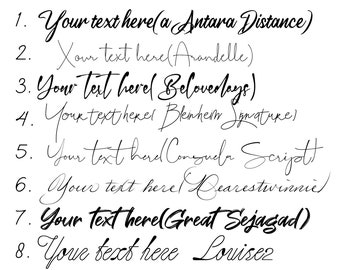 1. Your text here(a Antara Distance)
2. Your text here(Arandelle)
3. Your text here( Belovedays)
4. Your text here( Blenheim Signature)
5. Your text here(Consuela Script)
6. Your text here(Dearestwinnie)
7. Your text here(Great Sejagad)
8. Your text here Louise2